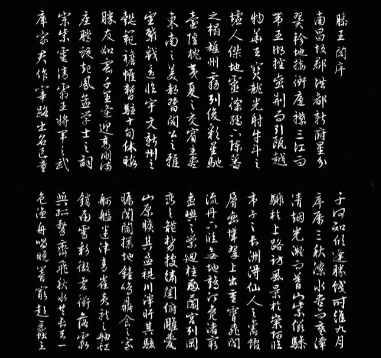 滕王閣序
南昌故郡洪都新府星分
翼軫地接衡廬襟三江而
帶五湖控蠻荊而引甌越
物華天寶龍光射牛斗之
墟人傑地靈徐孺下陳蕃
之榻雄州霧列俊彩星馳
臺隍枕夷夏之交賓主盡
東南之美都督閻公之雅
望棨戟遙臨宇文新州之
懿範襜帷暫駐十旬休暇
勝友如雲千里逢迎高朋滿
座騰蛟起鳳孟學士之詞
宗紫電清霜王將軍之武
庫家君作宰路出名區童
子何知躬逢勝餞時維九月
序屬三秋潦水盡而寒潭
清煙光凝而暮山紫儼驂
騑於上路訪風景於崇阿臨
帝子之長洲得仙人之舊館
層巒聳翠上出重霄飛閣
流丹下臨無地鶴汀鳧渚窮
島嶼之縈迴桂殿蘭宮列岡
巒之體勢披繡闥俯雕甍
山原曠其盈視川澤盱其駭
矚閭閻撲地鐘鳴鼎食之家
舸艦迷津青雀黃龍之舳虹
銷雨霽彩徹雲衢落霞
與孤鶩齊飛秋水共長天一
色漁舟唱晚響窮彭蠡之